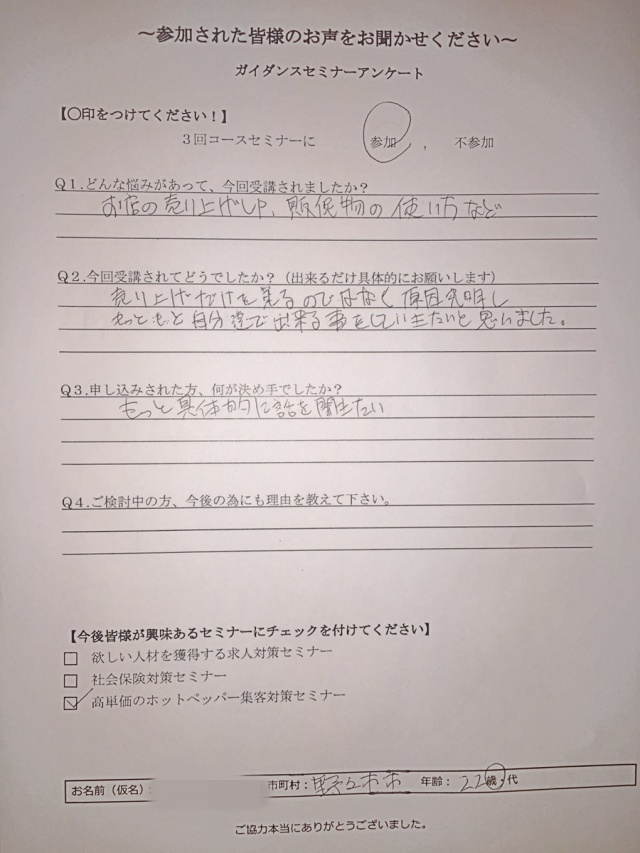 ～参加された皆様のお声をお聞かせください～
ガイダンスセミナーアンケート
【〇印をつけてください！】
３回コースセミナーに　参加　，　不参加
Ｑ１.どんな悩みがあって、今回受講されましたか？
お店の売り上げUP、販促物の使い方など
Ｑ２.今回受講されてどうでしたか？（出来るだけ具体的にお願いします）
売り上げだけを見るのではなく原因究明し
もっともっと自分達で出来る事をしていきたいと思いました。
Ｑ３.申し込みされた方、何が決め手でしたか？
もっと具体的に話を聞きたい
Ｑ４.ご検討中の方、今後の為にも理由を教えて下さい。
【今後皆様が興味あるセミナーにチェックを付けてください】
□　欲しい人材を獲得する求人対策セミナー
□　社会保険対策セミナー
☑　高単価のホットペッパー集客対策セミナー
お名前（仮名）：　市町村：野々市市　年齢：22歳・代
ご協力本当にありがとうございました。